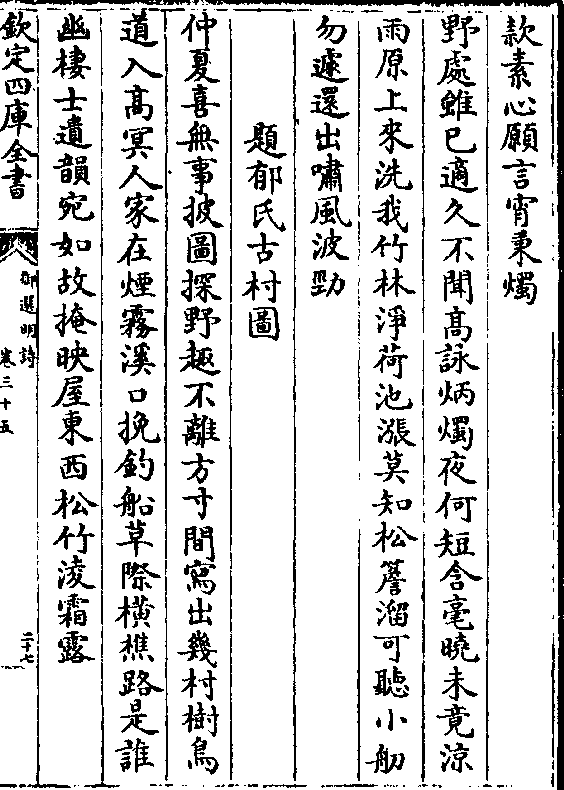 款素心願言宵秉燭
野處雖已適久不聞高詠炳燭夜何短含毫曉未竟涼
雨原上來洗我竹林淨荷池漲莫知松簷溜可聽小舠
勿遽還出嘯風波勁
題郁氏古村圖
仲夏喜無事披圖探野趣不離方寸間寫出幾村樹鳥
道入高冥人家在煙霧溪口挽釣船草際橫樵路是誰
幽棲士遺韻宛如故掩映屋東西松竹淩霜露
欽定四庫全書
御選明詩
卷三十五
二十七